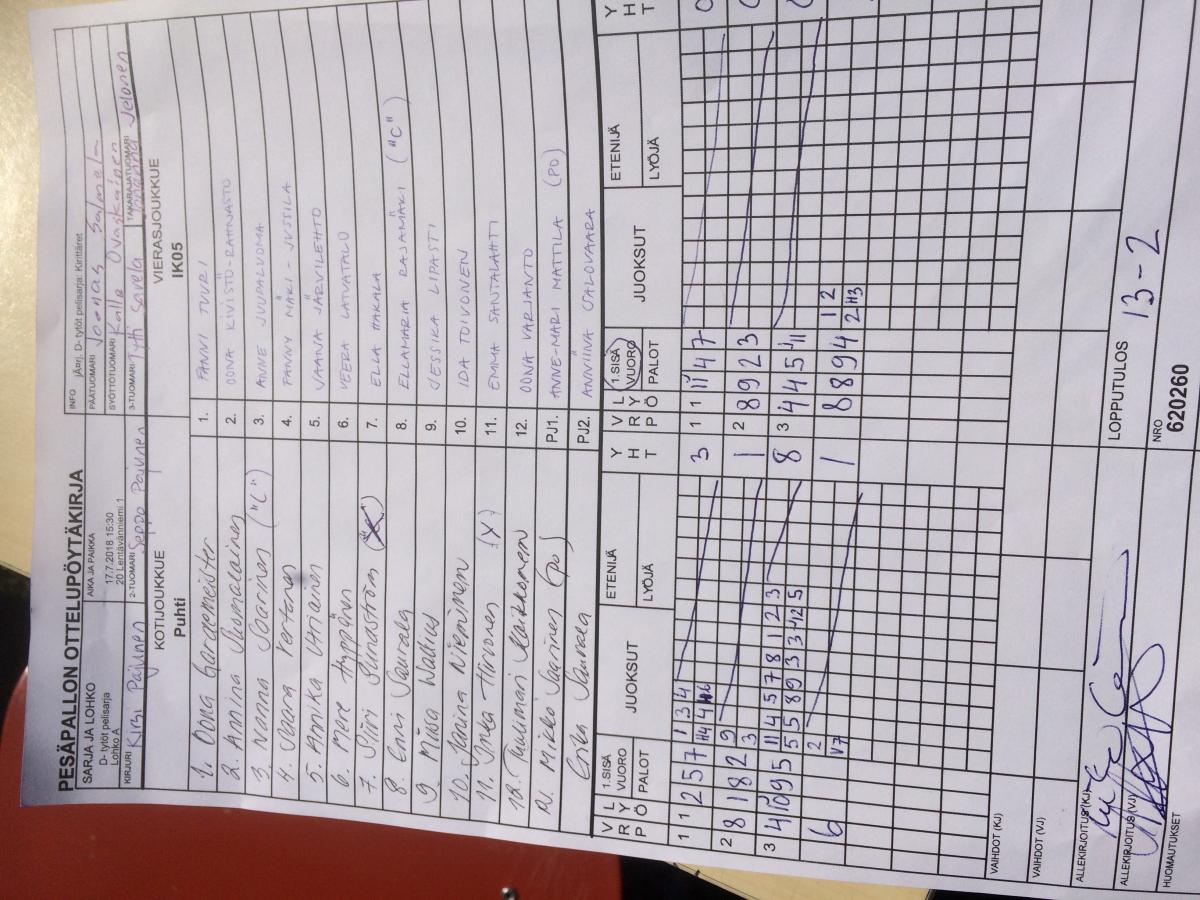 PESÄPALLON OTTELUPÖYTÄKIRJA
SARJA JA LOHKO
D- tytöt pelisarja
Lohko A
AIKA JA PAIKKA
17.7.2018 15:30
20 Lentävänniemi 1
INFO jÄorj. D- tytöt pelisarja: Kirittäret
PÄÄTUOMARI Joonas Salmela
SYÖTTÖTUOMARI Kalle Ovaskainen
KIRJURI Kirsi Pajunen
2-TUOMARI Seppo Pajunen
3-TUOMARI Tytti Savela
TAKARAJATUOMARI Johanna Jelonen
KOTIJOUKKUE
Puhti
VIERASJOUKKUE
IK05
1. Oona
2. Annina Suomalainen
3. Nanna Saarinen ("C")
4. Saara Vertanen
5. Annika Utriainen
6. Mere Hyppänen
7. Siiri Sundström
8. Enni Saurala
9. Miisa Wallius
10. Jaina Nieminen
11. Inka Hirvonen (X)
12. Tuulimari
PJ. Mikko Saarinen (PJ)
Erika Saurala
1. FANNI TUURI
2. OONA KIVISTÖ-RAHNASTO
3. ANNE JUUPALUOMA
4. FANNY MÄKI-JUSSILA
5. JAANA JÄRVILEHTO
6. VEERA LATVATALO
7. ELLA HAKALA
8. ELLAMARIA RAJAMÄKI ("C")
9. JESSIKA LIPASTI
10. IDA TOIVONEN
11. EMMA SANTALAHTI
12. OONA VARJANTO
PJ1. ANNE-MARI MATTILA (PJ)
PJ2. ANNIINA SALOVAARA
V R P L Y Ö 1.SISÄ VUORO PALOT JUOKSUT ETENIJÄ LYÖJÄ Y H T
V R P L Y Ö 1.SISÄ VUORO PALOT JUOKSUT ETENIJÄ LYÖJÄ Y H T
1 1 2 5 7 1 3 4 3
1 1 11 4 7
2 8 1 8 2 9 1
3
2 8 9 2 3
3 4 10 9 5 11 4 5 7 8 1 2 3 8
5 5 8 9 3 3 12 5
3 4 4 5 11
6 2 1
V7
8 8 9 4 1 2
2 H3
VAIHDOT (KJ)
VAIHDOT (VJ)
ALLEKIRJOITUS (KJ)
LOPPUTULOS 13-2
ALLEKIRJOITUS (VJ)
HUOMAUTUKSET
NRO
620260